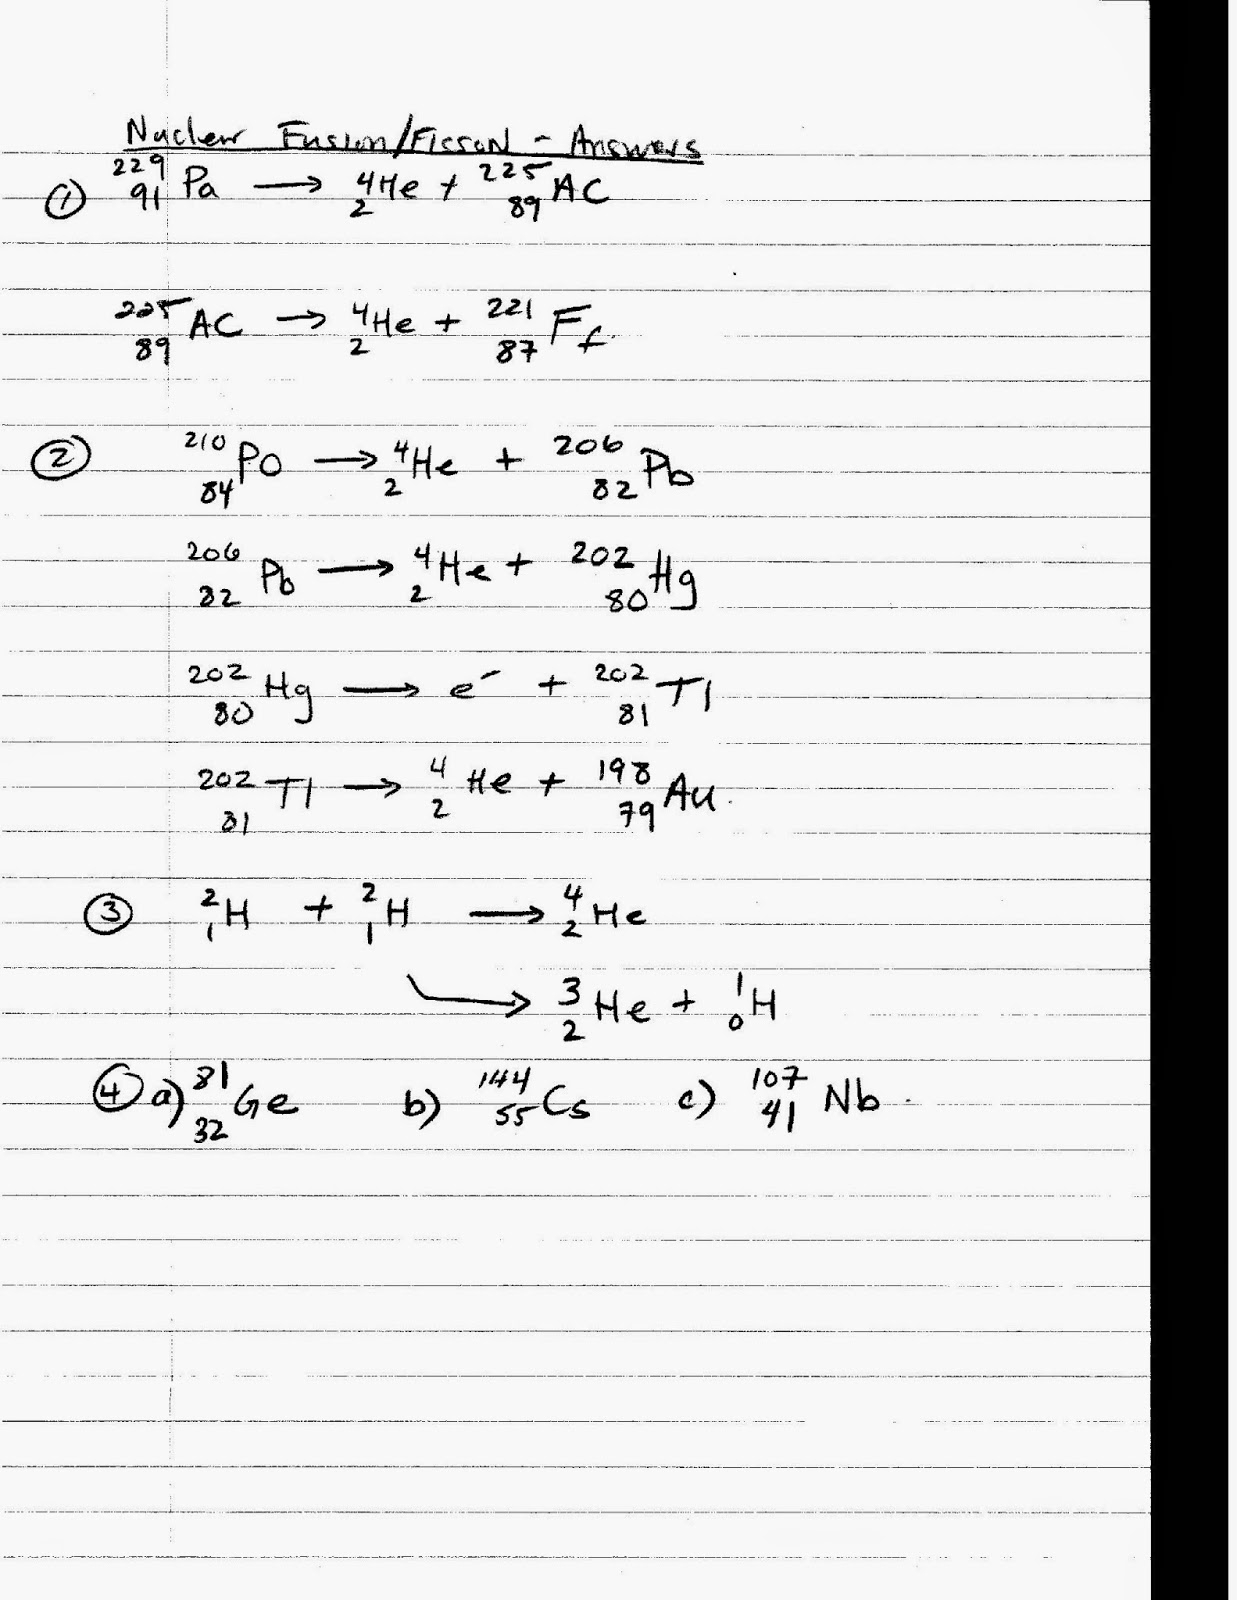 Nuclear Fusion/Fission - Answers
① ²²⁹₉₁Pa → ⁴₂He + ²²⁵₈₉AC
²²⁵₈₉AC → ⁴₂He + ²²¹₈₇Fr
② ²¹⁰₈₄PO → ⁴₂He + ²⁰⁶₈₂Pb
²⁰⁶₈₂Pb → ⁴₂He + ²⁰²₈₀Hg
²⁰²₈₀Hg → e⁻ + ²⁰²₈₁Tl
²⁰²₈₁Tl → ⁴₂He + ¹⁹⁸₇₉Au.
③ ²₁H + ²₁H → ⁴₂He
→ ³₂He + ¹₀H
④ a) ⁸¹₃₂Ge b) ¹⁴⁴₅₅Cs c) ¹⁰⁷₄₁Nb.